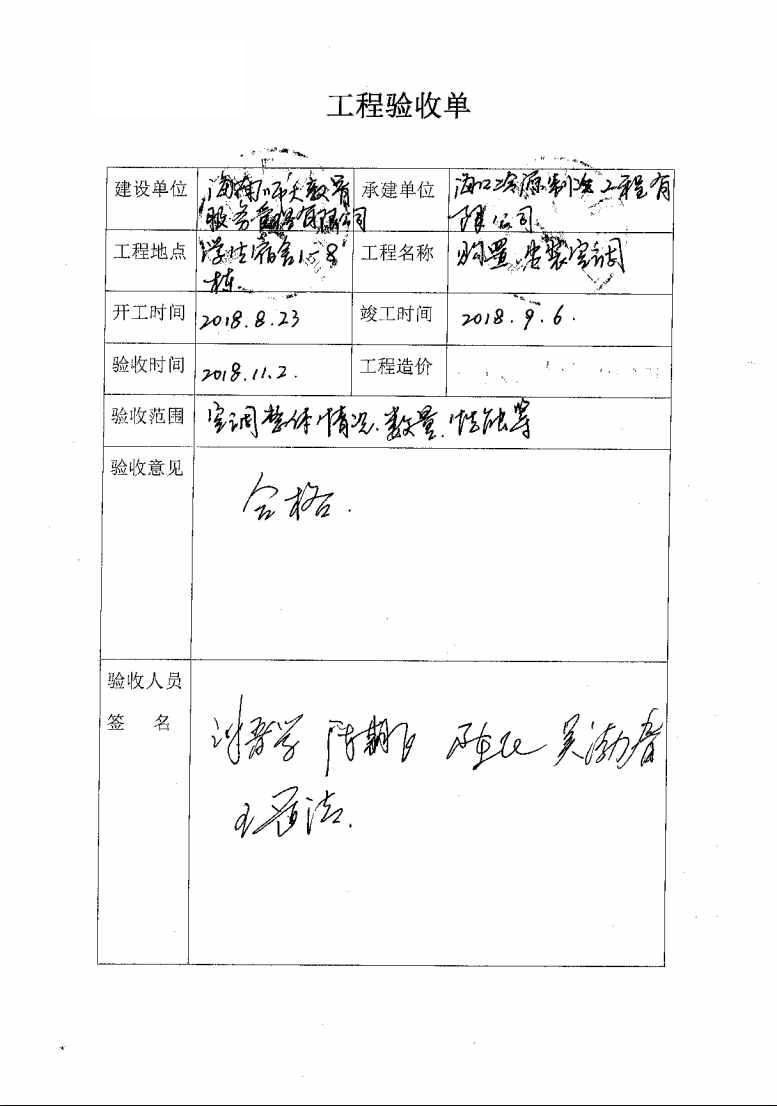 工程验收单
建设单位 海南师大教育 承建单位 海口冷源制冷工程有
服务 有限公司 限公司
工程地点 学生宿舍1.5.8 工程名称 购置、安装空调
栋.
开工时间 2018.8.23 竣工时间 2018.9.6.
验收时间 2018.11.2. 工程造价
验收范围 空调整体情况、数量、性能等
验收意见
合格.
验收人员
签 名